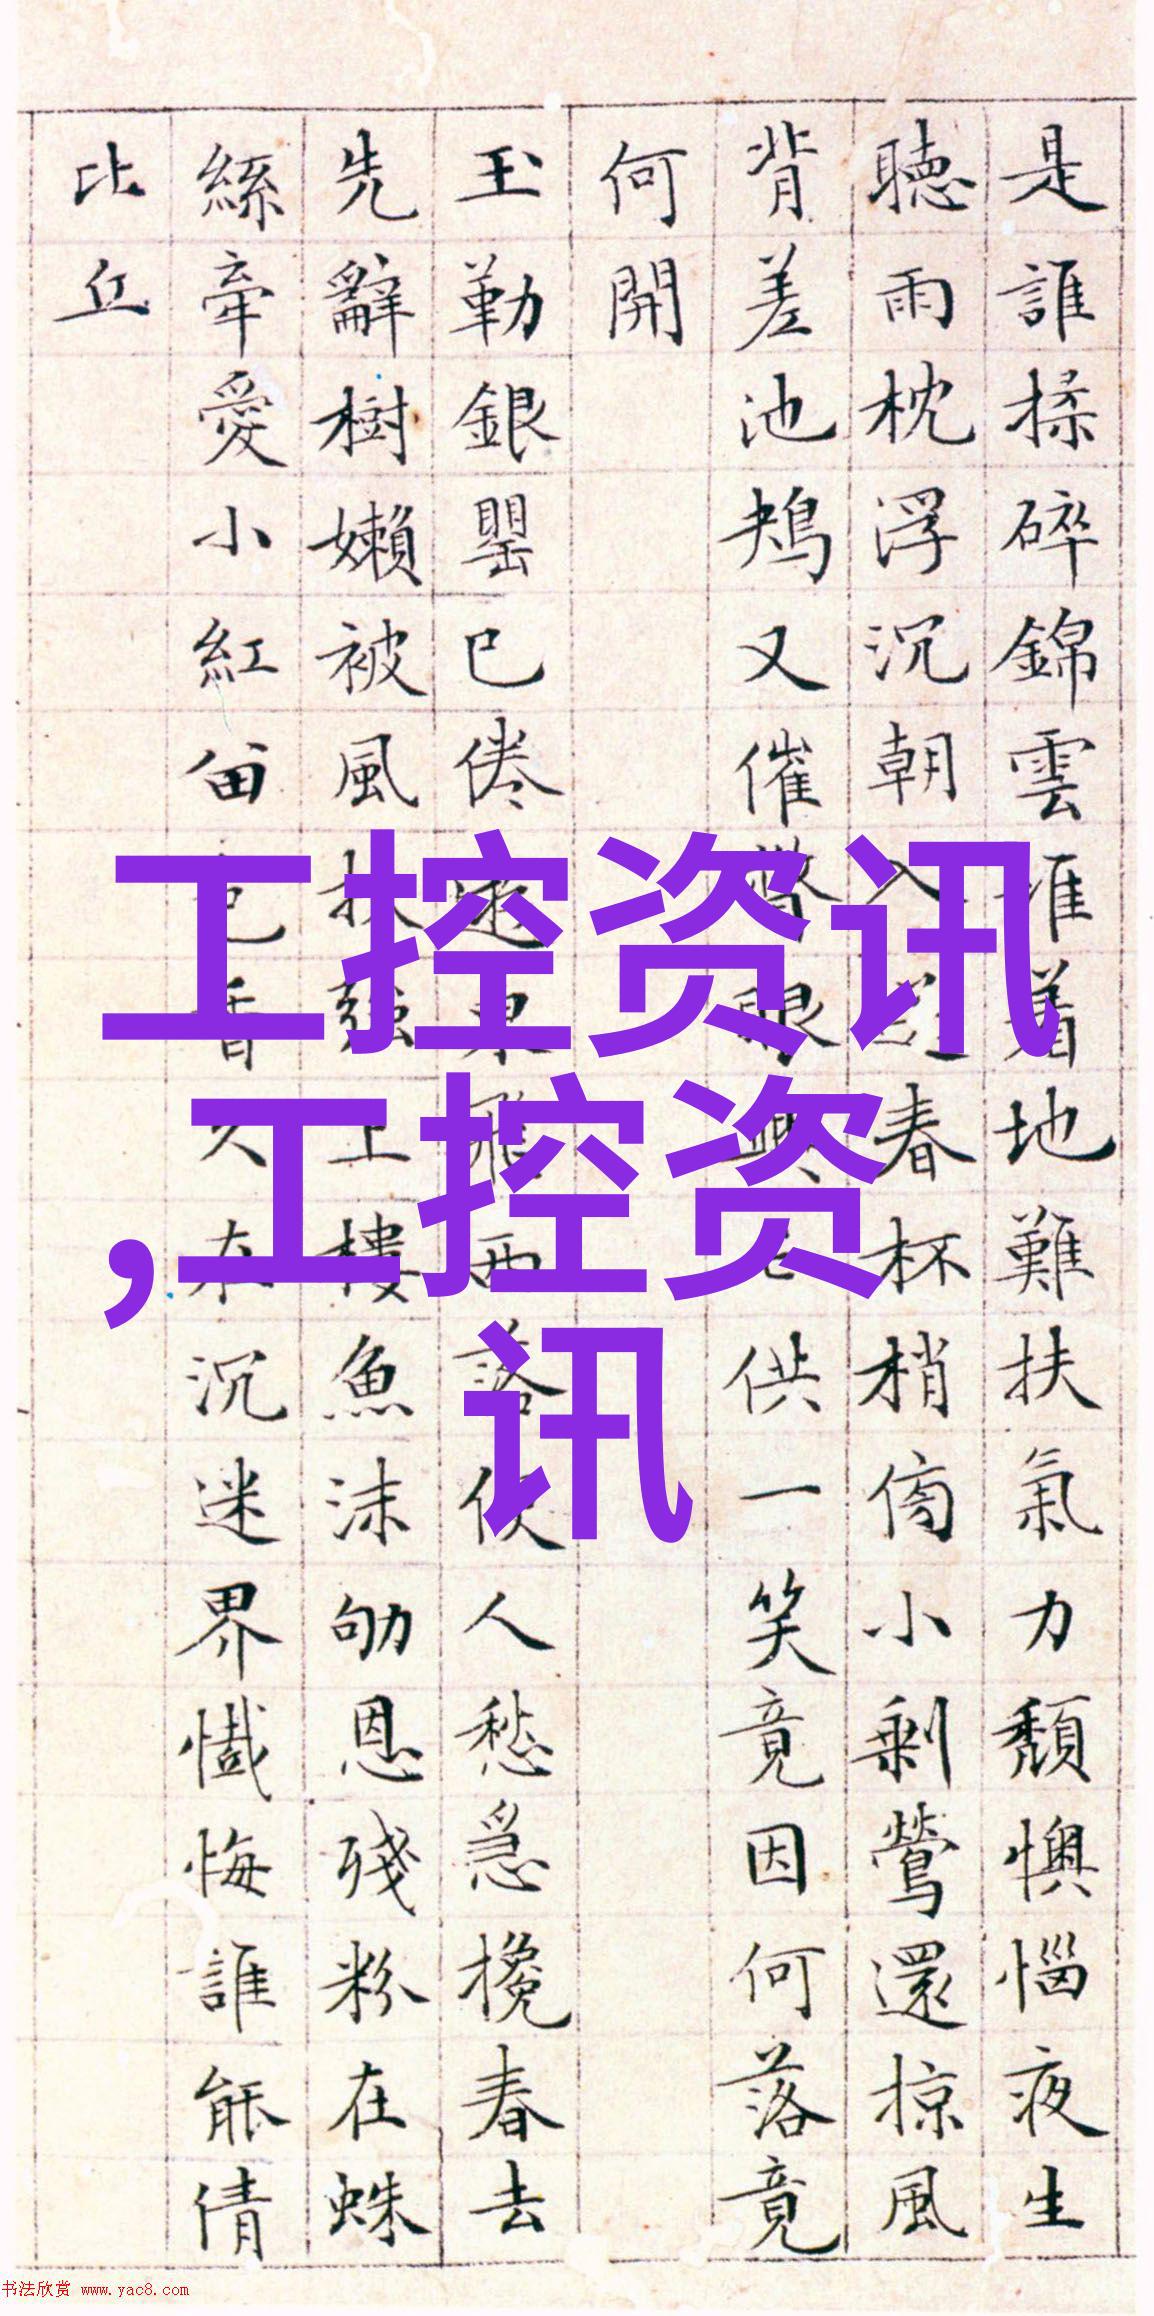 是誰揉碎錦雲堆着地難扶氣力頹懊惱夜生
聽雨枕浮沉朝入春杯梢傍小剩鶯還掠風
背差池鴂又催眼供一笑竟因何落竟
何開
玉勒銀罌已倦東飛西落使人愁急攙春去
先辭樹嬾被風扶强上樓魚沫劬恩殘粉在蛛
絲牽愛小紅留色香久在沉迷界懺悔誰能倩
比丘
工控资讯
,工控资
讯
书法欣赏 www.yac8.com